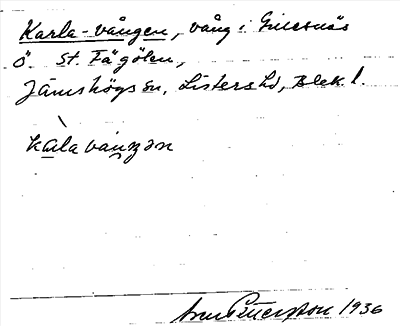 Karla-vången, vång i Grimsnäs
ö. St. Fägölen,
Jämshögs sn, Listers hd, Blek. l.
kalavaŋən
1936